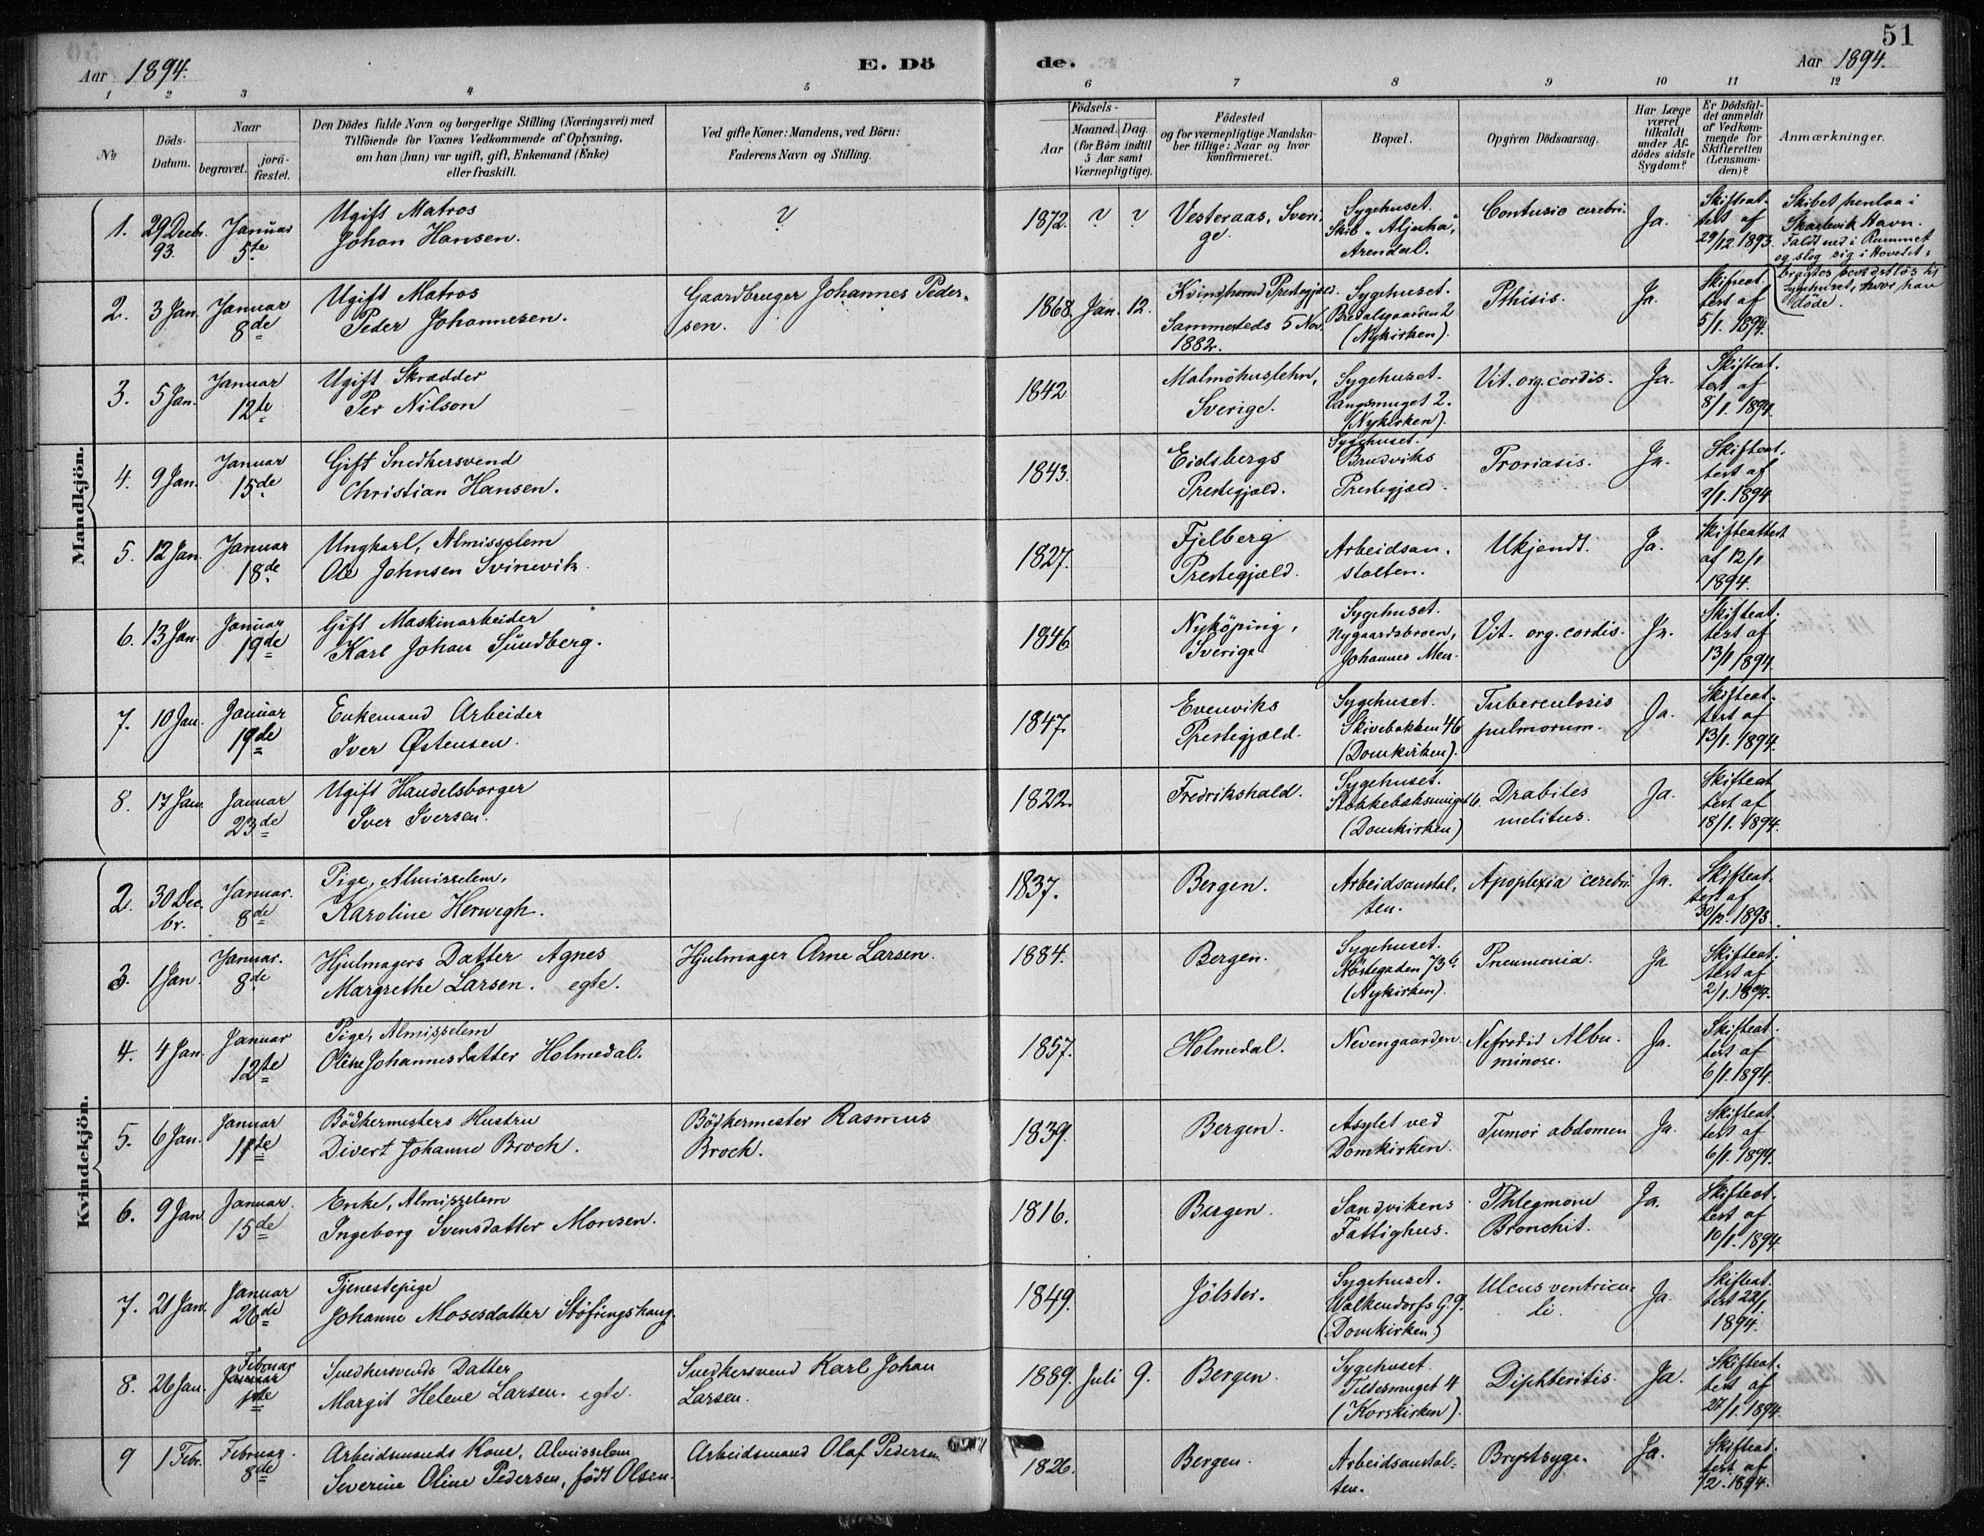 51
Aar 1894.
E. Dö
de.
Aar 1894.
1 2 3 4 5 6 7 8 9 10 11 12
№
Döds-
Datum.
Naar
begravet.
jord-
fæstet.
Den Dödes fulde Navn og borgerlige Stilling (Næringsvei) med
Tilföiende for Voxnes Vedkommende af Oplysning,
om han (hun) var ugift, gift, Enkemand (Enke)
eller fraskilt.
Ved gifte Koner: Mandens, ved Börn:
Faderens Navn og Stilling.
Födsels-
Aar
Maaned. Dag.
(for Börn indtil
5 Aar samt
Værnepligtige).
Födested
og for værnepligtige Mandska-
ber tillige: Naar og hvor
konfirmeret.
Bopæl.
Opgiven Dödsaarsag.
Har Læge
været
tilkaldt
under Af-
dödes sidste
Sygdom?
Er Dödsfal-
det anmeldt
af Vedkom-
mende for
Skifteretten
(Lensman-
den)?
Anmærkninger.
Mandkjön.
1.
29 Decb.
93.
Januar
5te
Ugift Matros
Johan Hansen.
?
1872. ? ?
Vesteraas, Sveri-
ge.
Sygehuset.
Arendal.
Contusio cerebri.
Ja.
Skifteat-
test af
29/12. 1893.
Skibet henlaa i
Skarlevik Havn.
Faldt ned i Rummet
og slog sig i Hovedet;
bragtes bevidstlös til
Sygehuset, hvor han
döde.
2.
3 Jan.
Januar
8de
Ugift Matros
Peder Johannesen.
Gaardbruger Johannes Peder-
sen.
1868. Jan. 12.
Kvindherred Prestegjæld.
Sammesteds 5 Nov.
1882.
Sygehuset.
(Nykirken).
Pthisis.
Ja.
Skifteat-
test af
5/1. 1894.
3.
5 Jan.
Januar
12te
Ugift Skrædder
Per Nilson
1842
Malmöhuslehn,
Sverige.
Sygehuset.
Vangsmuget 2.
(Nykirken).
Vit. org. cordis.
Ja.
Skifteat-
test af
8/1. 1894.
4.
9 Jan.
Januar
15de
Gift Snedkersvend
Christian Hansen.
1843.
Eidsbergs
Prestegjæld.
Sygehuset.
Bruviks
Prestegjæld.
Ja.
Skifteat-
test af
9/1. 1894
5.
12 Jan.
Januar
18de
Ungkarl, Almisselem
Ole Johnsen Svinevik.
1827.
Fjelberg
Prestegjæld.
Arbeidsan-
stalten.
Ukjendt.
Ja.
Skifteattest
af 12/1
1894.
6.
13 Jan.
Januar
19de
Gift Maskinarbeider
Karl Johan Sundberg.
1846
Nyköping,
Sverige
Sygehuset.
Nygaardsbroen,
Johannes Men.
Vit. org. cordis.
Ja.
Skifteat-
test af
13/1 1894.
7.
10 Jan.
Januar
19de
Enkemand Arbeider
Iver Østensen.
1847.
Evenviks
Prestegjæld.
Sygehuset.
Skivebakken 46
(Domkirken).
Tuberculosis
pulmorum.
Ja.
Skifteat-
test af
13/1. 1894.
8.
17 Jan.
Januar
23de
Ugift Handelsborger
Iver Iversen.
1822.
Fredrikshald.
Sygehuset.
(Domkirken)
Drabites
melitus.
Ja.
Skifteat-
test af
18/1. 1894.
Kvindekjön.
2.
30 Dec-
br.
Januar.
8de
Pige, Almisselem,
Karoline Herwegh.
1837.
Bergen.
Arbeidsanstal-
ten.
Apoplexia cerebri.
Ja.
Skifteat-
test af
30/12. 1893.
3.
1 Jan.
Januar.
8de
Hjulmagers Datter Agnes
Margrethe Larsen. egte.
Hjulmager Arne Larsen.
1884.
Bergen.
Sygehuset.
Nöstegaden 73b.
(Nykirken).
Pneumonia.
Ja
Skifteat-
test af
2/1. 1894.
4.
4 Jan.
Januar
12te
Pige, Almisselem
Oline Johannesdatter Holmedal.
1857.
Holmedal.
Nevengaarden.
Nefrodis Albu-
minose.
Ja.
Skifteat-
test af
6/1. 1894.
5.
6 Jan.
Januar
11te
Bödkermesters Hustru
Divert Johanne Broch.
Bödkermester Rasmus
Broch.
1839.
Bergen.
Asylet ved
Domkirken.
Tumor abdomen
Ja.
Skifteat-
test af
6/1. 1894.
6.
9 Jan.
Januar.
15de
Enke, Almisselem
Ingeborg Svensdatter Monsen.
1816.
Bergen.
Sandvikens
Fattighus.
Phlegmone
Bronchit.
Ja.
Skifteat-
test af
10/1. 1894.
7.
21 Jan.
Januar
26de
Tjenestepige
Johanne Mosesdatter Stöfringshaug.
1849.
Jölster.
Sygehuset.
Walkendorfs G. 9.
(Domkirken)
Ulcus ventricu-
li.
Ja.
Skifteat-
test 22/1.
1894.
8.
26 Jan.
Februar
Januar
1ste
Snedkersvends Datter
Margit Helene Larsen. egte.
Snedkersvend Karl Johan
Larsen.
1889. Juli 9.
Bergen.
Sygehuset.
(Korskirken).
Diphteritis.
Ja.
Skifteat-
test af
27/1. 1894.
9
1 Febr.
Februar.
8de
Arbeidsmands Kone, Almisselem
Severine Oline Pedersen, födt Olsen.
Arbeidsmand Olaf Pedersen
1826.
Bergen.
Arbeidsanstal-
ten.
Brystsyge.
Ja.
Skifteat-
test af
1/2. 1894.